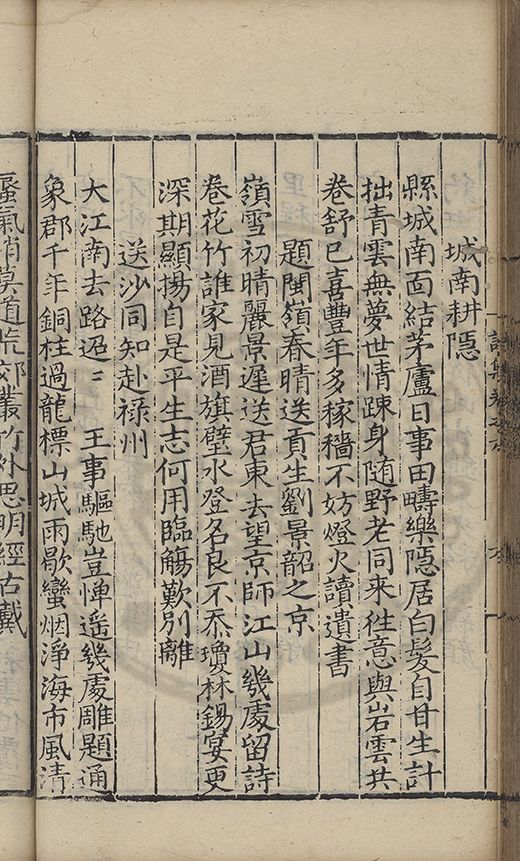 城南耕隱
縣城南面結茅廬日事田疇樂隱居白髮自甘生計
拙青雲無夢世情踈身随野老同来徃意與岩雲共
卷舒已喜豐年多稼穡不妨燈火讀遺書
題閩嶺春晴送貢生劉景韶之京
嶺雪初晴麗景遲送君東去望京師江山幾處留詩
卷花竹誰家見酒旗璧水登名良不忝瓊林錫宴更
深期顯揚自是平生志何用臨觴歎別離
送沙同知赴禄州
大江南去路迢〻王事驅馳豈憚遥幾處雕題通
象郡千年銅柱過龍標山城雨歇蠻烟淨海市風清
蜃氣消莫道荒郊叢竹外思明經古戴